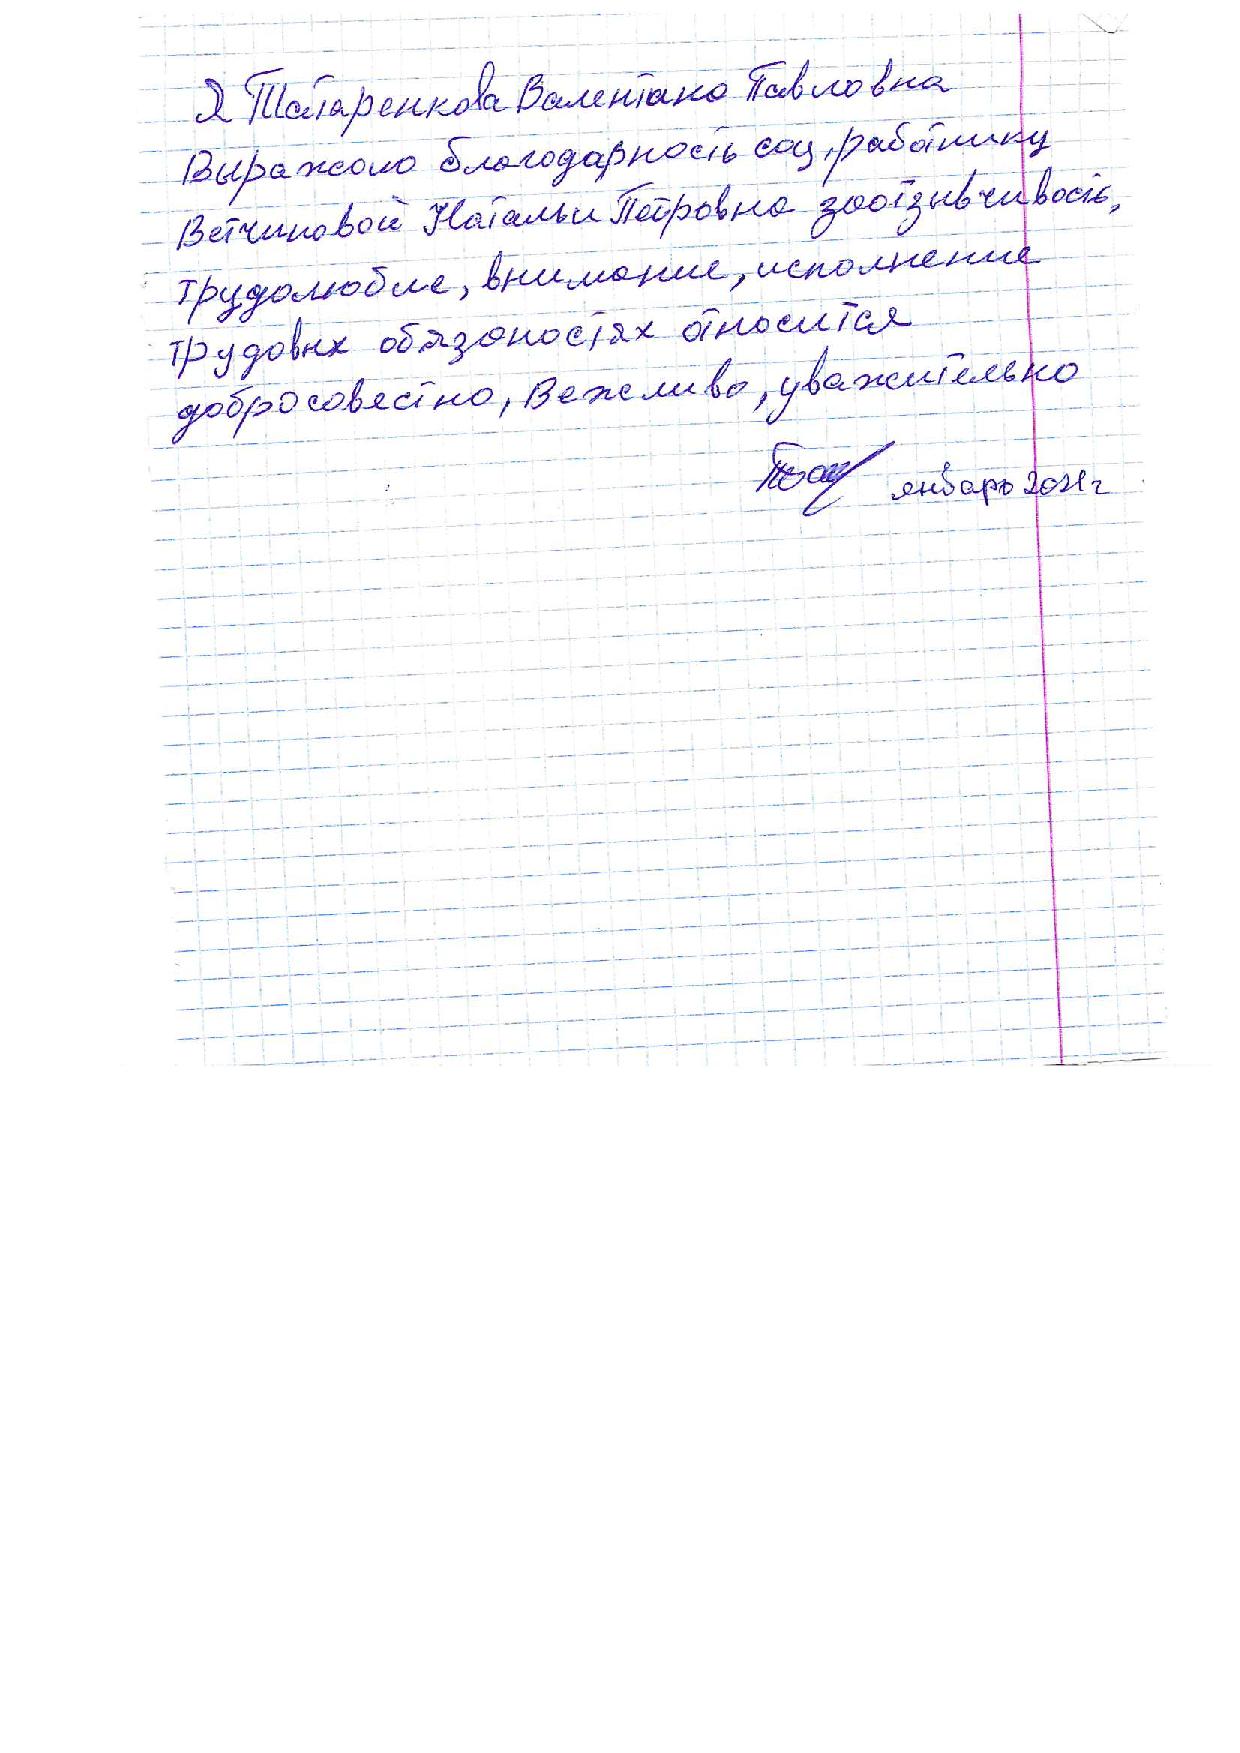 Я Татаренкова Валентана Павловна
Выражаю благодарность соц, работнику
Ветчиновой Натальи Петровна заотзывчивость,
трудолюбие, внимание, исполнение
трудовых обязаностях относится
добросовестно, Вежливо, уважительно
январь 2021г